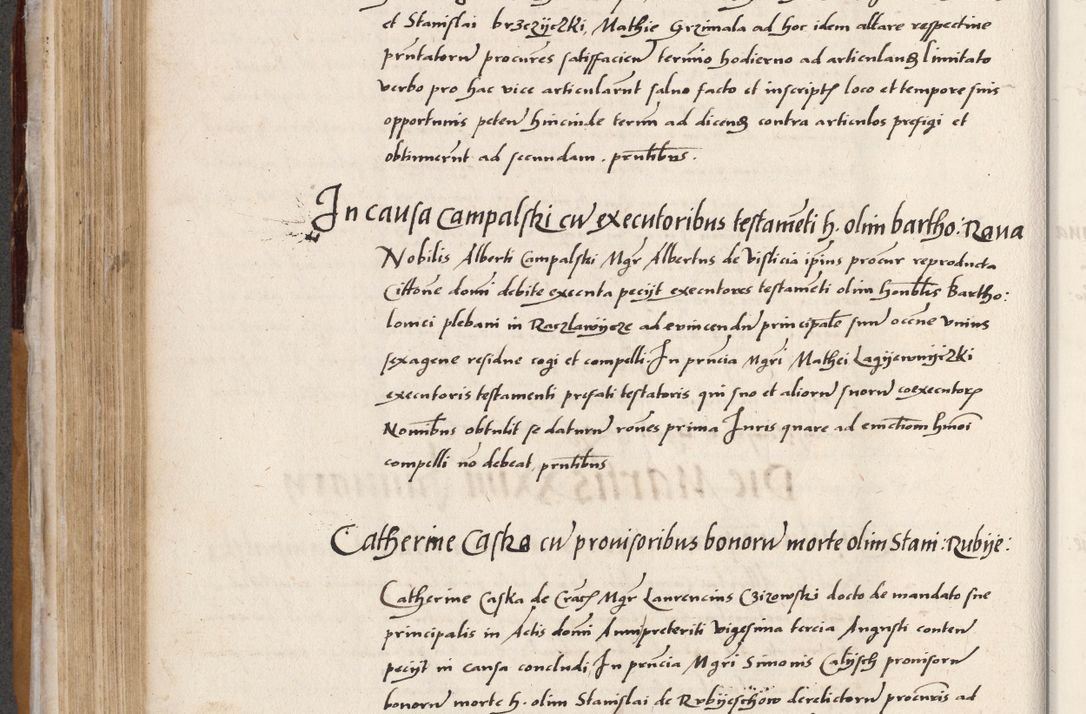 et Stanislai brzezyczki, Mathie Grzimala ad hoc idem altare respective
pntatorū procures satisfacien̄ termīo hodierno ad articulanđ limitato
verbo pro hac vice articularūt salvo facto et inscriptꝭ loco et tempore suis
opportunis peteñ hincinde terım ad dicenđ contra articulos prefigi et
obtinuerūt ad secundam . pn̄tibus .
In causa Campalski cū executoribus testamēti h. olim bartho: Rava
Nobilis Alberti Campalski Mgr Albertus de Visticia ip̄ius procur reproducta
Cittōne domi debite executa pecijt executores testamēti olim honb̄lis Bartho:
lomei plebani in Raczlawijcze ad evincendū principale suū occ̄ne vnius
sexagene residue cogi et compelli. In pn̄cia Mgri Mathei Lagijewnijczki
executoris testamenti prefati testatoris qui suo et aliorū suorū coexecutorꝝ
Nomībus obtulit se daturū rōnes prima Iuris quare ad emctiōem hmōi
compelli nō debeat, pn̄tibus
Catherine Caska cū provisoribus bonorū morte olim Stani: Rubije:
Catherine Caska de Crac̄ Mgr Laurencius Czirowski docto de mandato sue
principalis in Actis domī Anni preteriti vigesima tercia Augusti conteñ
pecijt in causa concludi, In pn̄cia Mgri Simonis Calijsch provisorū
bonorū morte h. olim Stanislai de Rvbijeschow derelictorū procuris ad